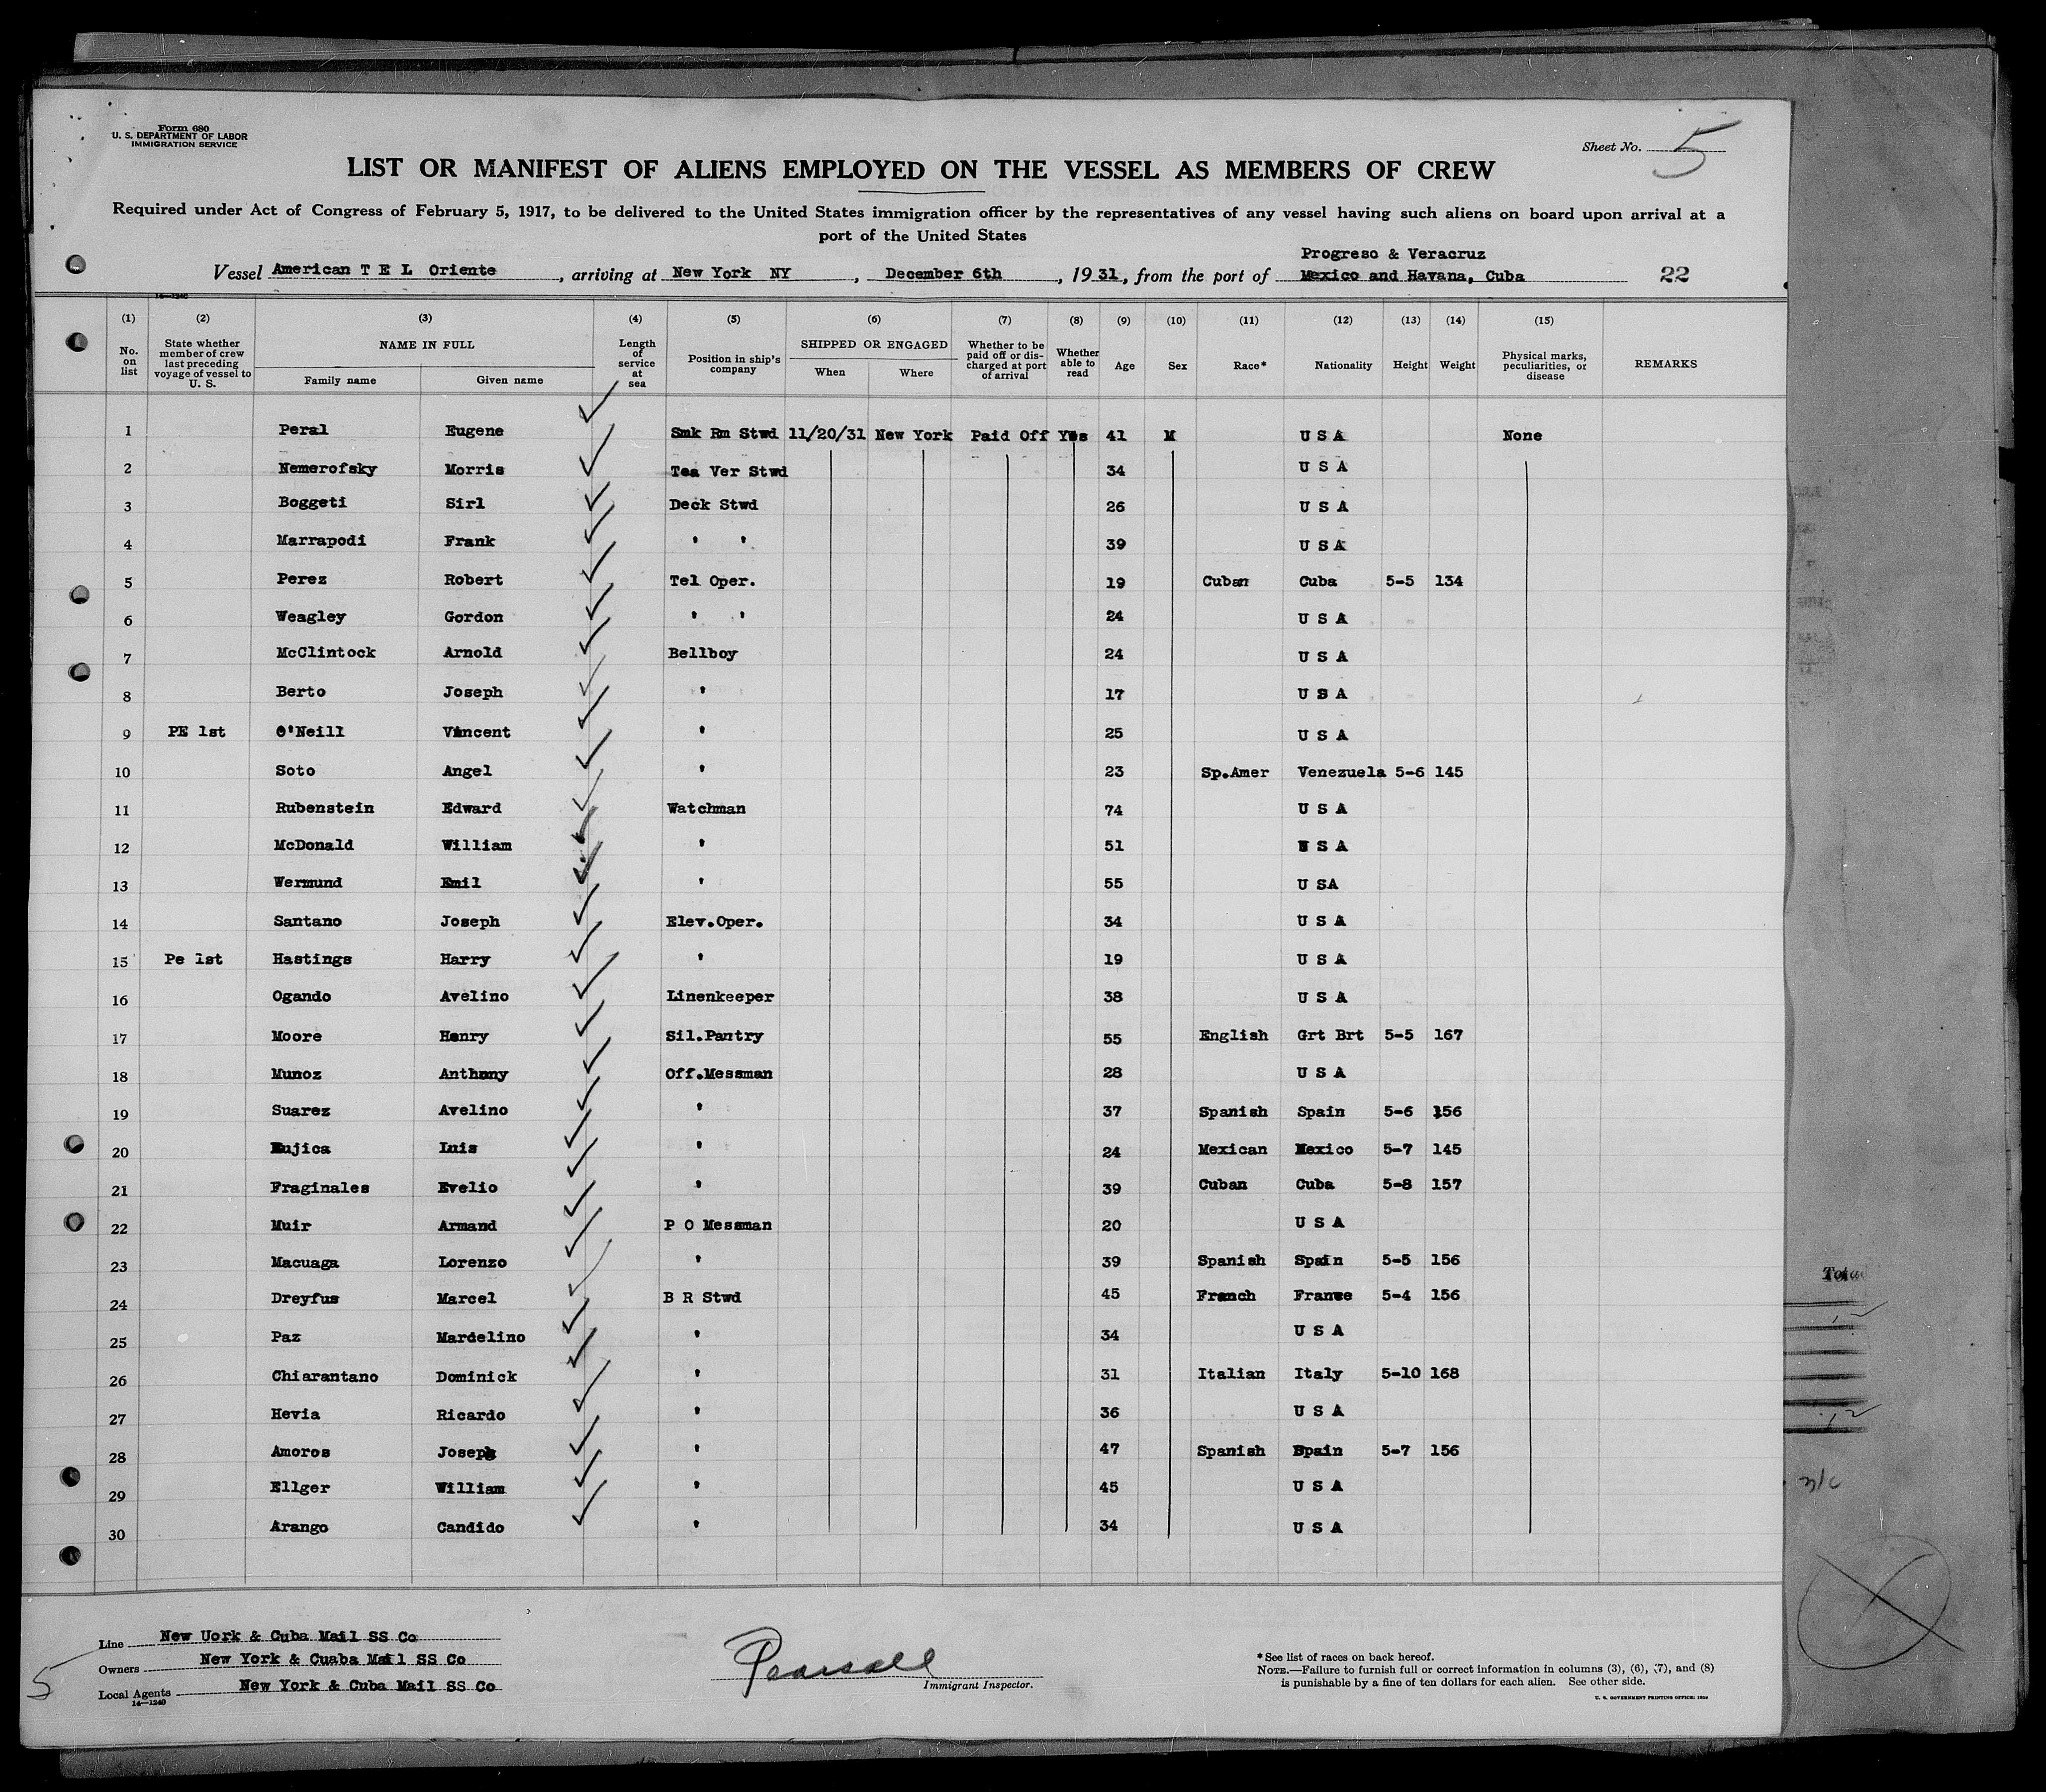 Form 680
U. S. DEPARTMENT OF LABOR
IMMIGRATION SERVICE
Sheet No. 5
LIST OR MANIFEST OF ALIENS EMPLOYED ON THE VESSEL AS MEMBERS OF CREW
Required under Act of Congress of February 5, 1917, to be delivered to the United States immigration officer by the representatives of any vessel having such aliens on board upon arrival at a
port of the United States
Progreso & Veracruz
Vessel American T E L Oriente, arriving at New York NY, December 6th, 1931, from the port of Mexico and Havana, Cuba 22
14—1240
(1) (2) (3) (4) (5) (6) (7) (8) (9) (10) (11) (12) (13) (14) (15)
No. on list State whether member of crew last preceding voyage of vessel to U. S. NAME IN FULL Family name Given name Length of service at sea Position in ship's company SHIPPED OR ENGAGED When Where Whether to be paid off or discharged at port of arrival Whether able to read Age Sex Race* Nationality Height Weight Physical marks, peculiarities, or disease REMARKS
1 Peral Eugene Smk Rm Stwd 11/20/31 New York Paid Off Yes 41 M U S A None
2 Nemerofsky Morris Tea Ver Stwd 34 U S A
3 Boggeti Sirl Deck Stwd 26 U S A
4 Marrapodi Frank ' ' 39 U S A
5 Perez Robert Tel Oper. 19 Cuban Cuba 5-5 134
6 Weagley Gordon ' ' 24 U S A
7 McClintock Arnold Bellboy 24 U S A
8 Berto Joseph ' 17 U S A
9 PE 1st O'Neill Vincent ' 25 U S A
10 Soto Angel ' 23 Sp.Amer Venezuela 5-6 145
11 Rubenstein Edward Watchman 74 U S A
12 McDonald William ' 51 U S A
13 Wermund Emil ' 55 U SA
14 Santano Joseph Elev.Oper. 34 U S A
15 Pe 1st Hastings Harry ' 19 U S A
16 Ogando Avelino Linenkeeper 38 U S A
17 Moore Henry Sil.Pantry 55 English Grt Brt 5-5 167
18 Munoz Anthony Off.Messman 28 U S A
19 Suarez Avelino ' 37 Spanish Spain 5-6 156
20 Mujica Luis ' 24 Mexican Mexico 5-7 145
21 Fraginales Evelio ' 39 Cuban Cuba 5-8 157
22 Muir Armand P O Messman 20 U S A
23 Macuaga Lorenzo ' 39 Spanish Spain 5-5 156
24 Dreyfus Marcel B R Stwd 45 French France 5-4 156
25 Paz Mardelino ' 34 U S A
26 Chiarantano Dominick ' 31 Italian Italy 5-10 168
27 Hevia Ricardo ' 36 U S A
28 Amoros Joseph ' 47 Spanish Spain 5-7 156
29 Ellger William ' 45 U S A
30 Arango Candido ' 34 U S A
Line New Uork & Cuba Mail SS Co
Owners New York & Cuaba Mail SS Co
Local Agents New York & Cuba Mail SS Co
14—1240
5
Pearsall
Immigrant Inspector.
* See list of races on back hereof.
NOTE.—Failure to furnish full or correct information in columns (3), (6), (7), and (8)
is punishable by a fine of ten dollars for each alien. See other side.